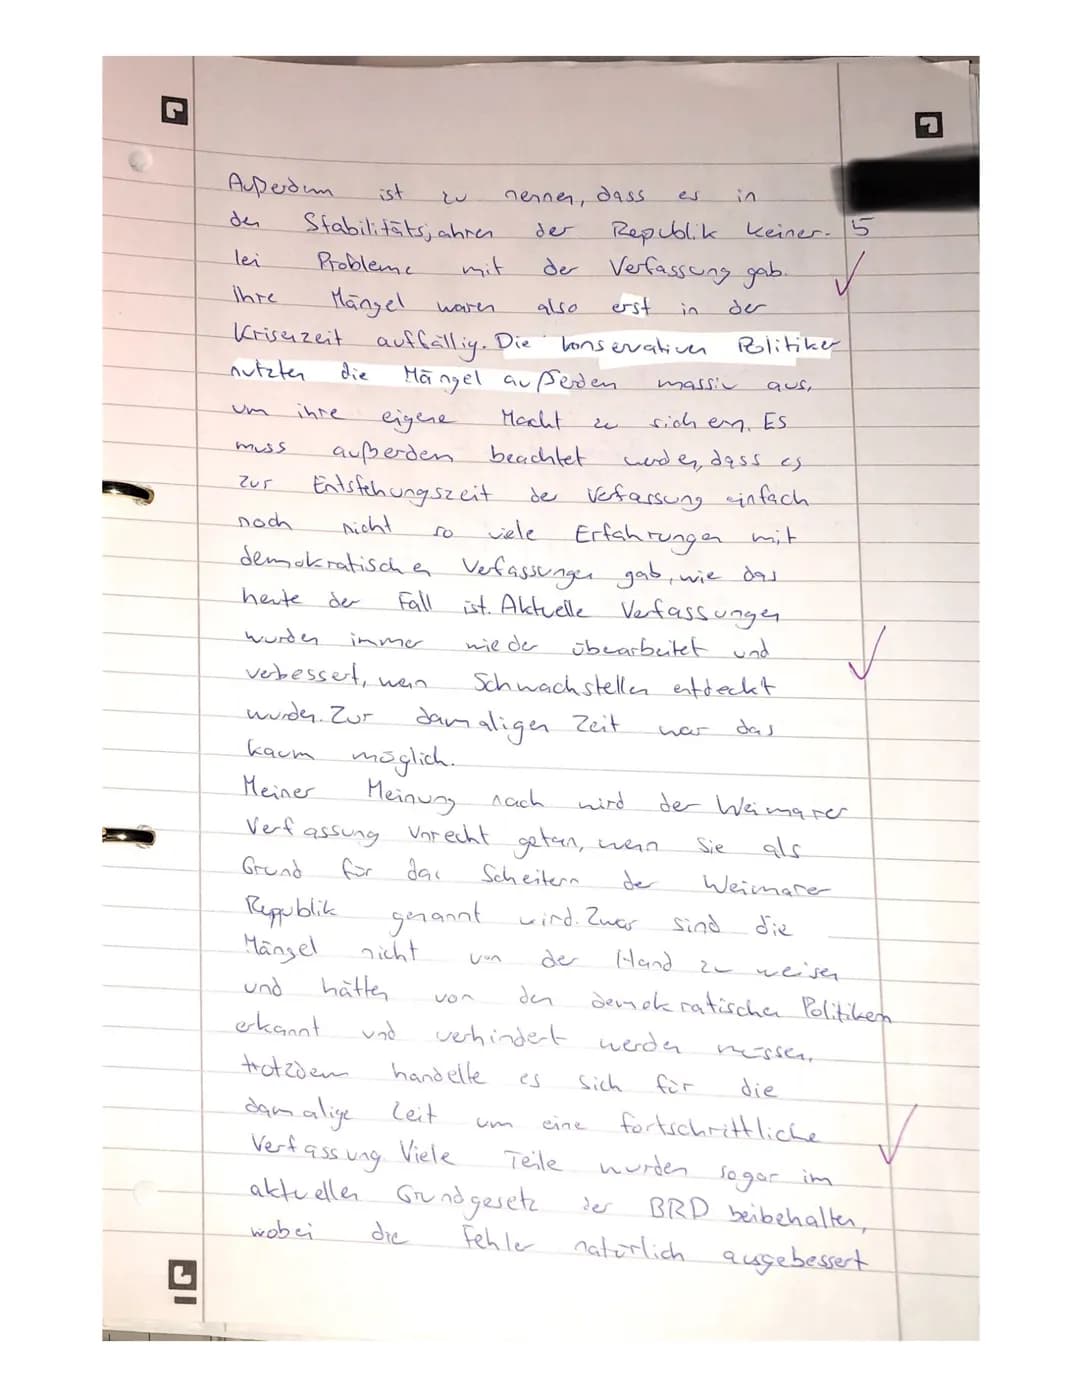 Außerdem ist zu nennen, dass es in
den Stabilitätsjahren der Republik keiner- 5
lei Probleme mit der Verfassung gab.
Ihre Mängel waren also erst in der
Krisenzeit auffällig. Die konservativen Politiker
nutzten die Mängel außerdem massiv aus,
um ihre eigene Macht zu sichern. Es
muss außerdem beachtet werden, dass es
zur Entstehungszeit der Verfassung einfach
noch nicht so viele Erfahrungen mit
demokratischen Verfassungen gab, wie das
heute der Fall ist. Aktuelle Verfassungen
wurden immer wieder überarbeitet und
verbessert, wenn Schwachstellen entdeckt
wurden. Zur damaligen Zeit war das
kaum möglich.
Meiner Meinung nach wird der Weimarer
Verfassung Unrecht getan, wenn Sie als
Grund für das Scheitern der Weimarer
Reppublik genannt wird. Zwar sind die
Mängel nicht von der Hand zu weisen
und hätten von den demokratischen Politikern
erkannt und verhindert werden müssen,
trotzdem handelte es sich für die
damalige Zeit um eine fortschrittliche
Verfassung. Viele Teile wurden sogar im
aktuellen Grundgesetz der BRD beibehalten,
wobei die Fehler natürlich ausgebessert